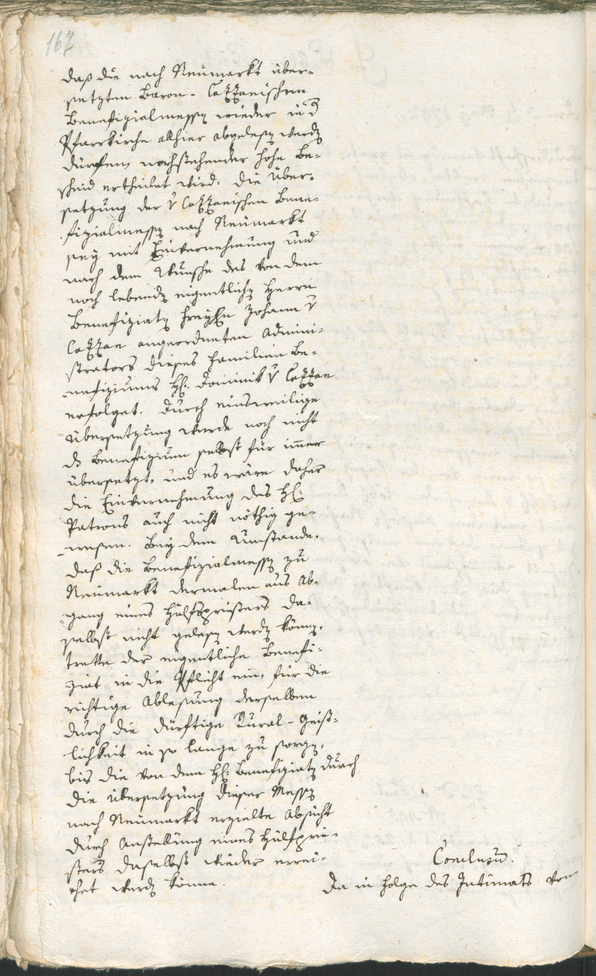 167
daß die nach Neumarkt über-
setzten Baron- Cazzanischen
Benefizialmessen wieder in d
Pfarrkirche allhier abgelesen werden
dürffen, nachstehender hohe Be-
scheid ertheilet wird. Die Über-
setzung der v Cazzanischen Bene-
fizialmessen nach Neumarkt
sey mit Einvernehmung und
nach dem Wunsche des von dem
noch lebenden eigentlichen Herrn
Benefiziaten Johann v
Cazzan angeordneten Admini-
strators dieses Familien Be-
nefiziums H. Dominik v Cazzan
erfolget. Durch einsweilige
Übersetzung werde noch nicht
ds Benefizium selbst für immer
übersetzt, und es wäre daher
die Einvernehmung des H.
Patrons auch nicht nöthig ge-
wesen. Bey dem Umstande,
daß die Benefizialmessen zu
Neumarkt dermalen aus Ab-
gang eines Hülfspriesters da-
selbst nicht gelesen werden könen,
trette der eigentliche Benefi-
ziat in die Pflicht ein, für die
richtige Ablesung derselben
durch die dürftige Rural-Geist-
lichkeit in so lange zu sorgen,
bis die von dem H. Benefiziaten durch
die Übersetzung dieser Messen
nach Neumarkt erzielte Absicht
durch Anstellung eines Hülfsprie-
sters daselbst wieder errei-
chet werden könne.
Conclusum.
Da in Folge des Intimats von